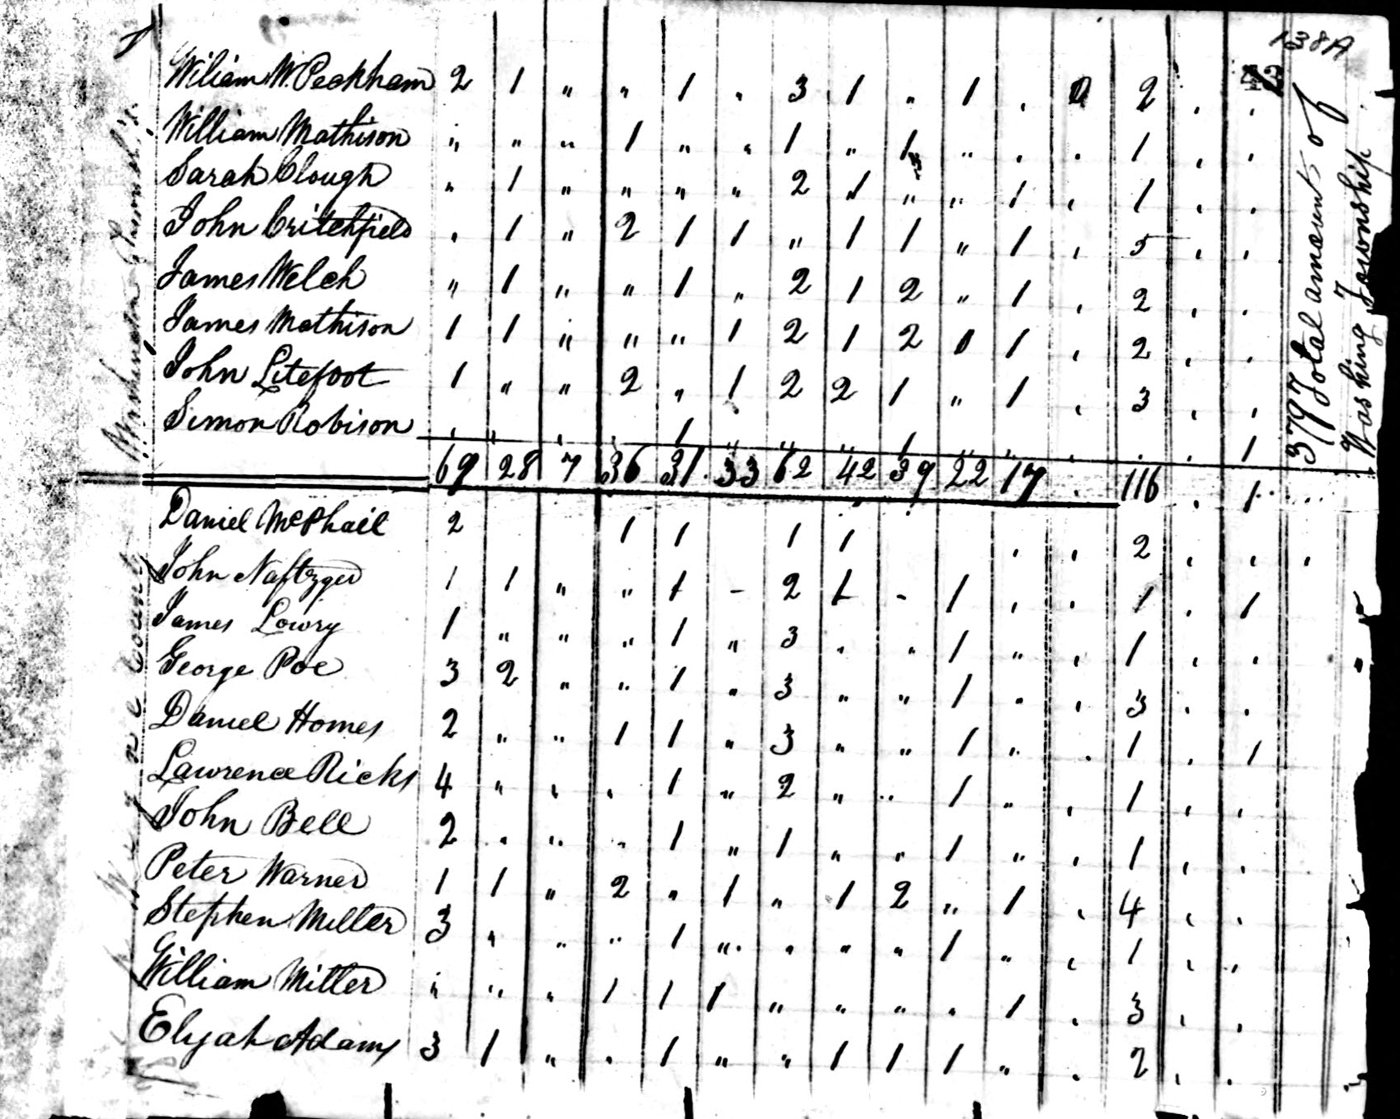 138A
43
Wiliam W. Peckham 2 1 " " 1 " 3 1 " 1 . 0 2 . .
William Mathison " " " 1 " " 1 " 1 " . . 1 . .
Sarah Clough " 1 " " " " 2 1 " " 1 . 1 . .
John Critchfield . 1 " 2 1 1 " 1 1 " 1 . 5 . .
James Welch " 1 " " 1 " 2 1 2 " 1 . 2 . .
James Mathison 1 1 " " " 1 2 1 2 0 1 . 2 . .
John Litefoot 1 " " 2 " 1 2 2 1 " 1 . 3 . .
Simon Robison . " . . 1 " " " 1 " " . . . 1
69 28 7 36 31 33 62 42 39 22 17 . 116 . 1
Daniel McPhail 2 1 1 1 1 . . 2 . . .
John Naftzger 1 1 " " 1 - 2 1 - 1 . . 1 . 1
James Lowry 1 " " " 1 " 3 . . 1 " . 1 . .
George Poe 3 2 " " 1 " 3 " " 1 . . 3 . .
Daniel Homes 2 " " 1 1 " 3 " " 1 " . 1 . 1
Lawrence Ricks 4 " . . 1 " 2 " " 1 " . 1 . .
John Bell 2 . " . 1 " 1 " " 1 " . 1 . .
Peter Warner 1 1 " 2 " 1 " 1 2 " 1 . 4 . .
Stephen Miller 3 " " " 1 " . " " 1 " . 1 . .
William Miller " " " 1 1 1 " " " . 1 . 3 . .
Elijah Adams 3 1 " . 1 " " 1 1 1 " . 2 . .
3797 Total amount of
Washing Township
Wayne County